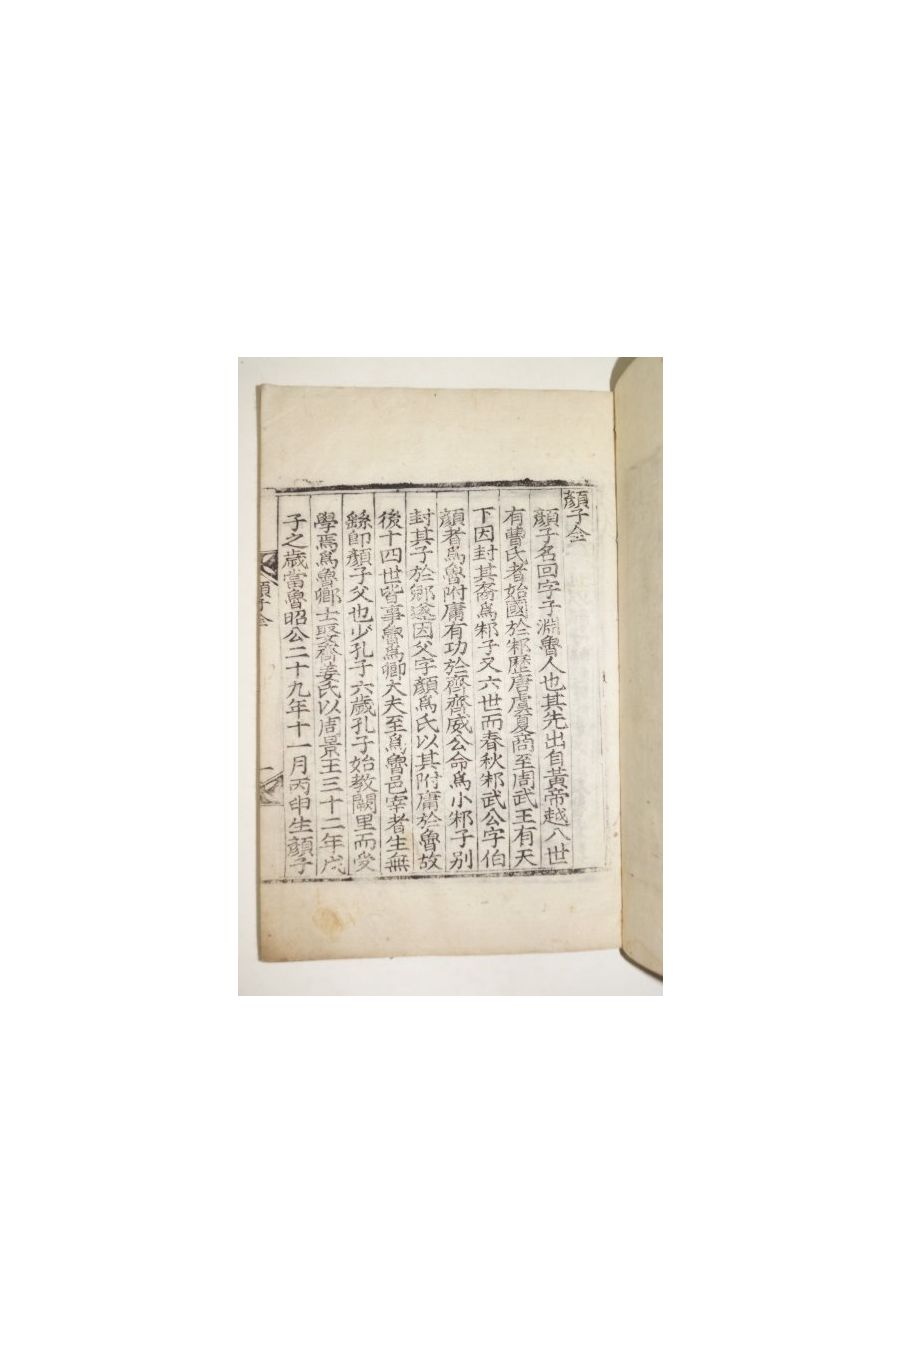 顔子全
顔子名回字子淵魯人也其先出自黃帝越八世
有曹氏者始國於邾歷唐虞夏商至周武王有天
下因封其裔爲邾子又六世而春秋邾武公字伯
顔者爲魯附庸有功於齊齊威公命爲小邾子别
封其子於郳遂因父字顔爲氏以其附庸於魯故
後十四世皆事魯爲卿大夫至爲魯邑宰者生無
繇卽顔子父也少孔子六歲孔子始教闕里而受
學焉爲魯卿士娶齊姜氏以周景王三十二年戌
子之歲當魯昭公二十九年十一月丙申生顔子
顔子全
一